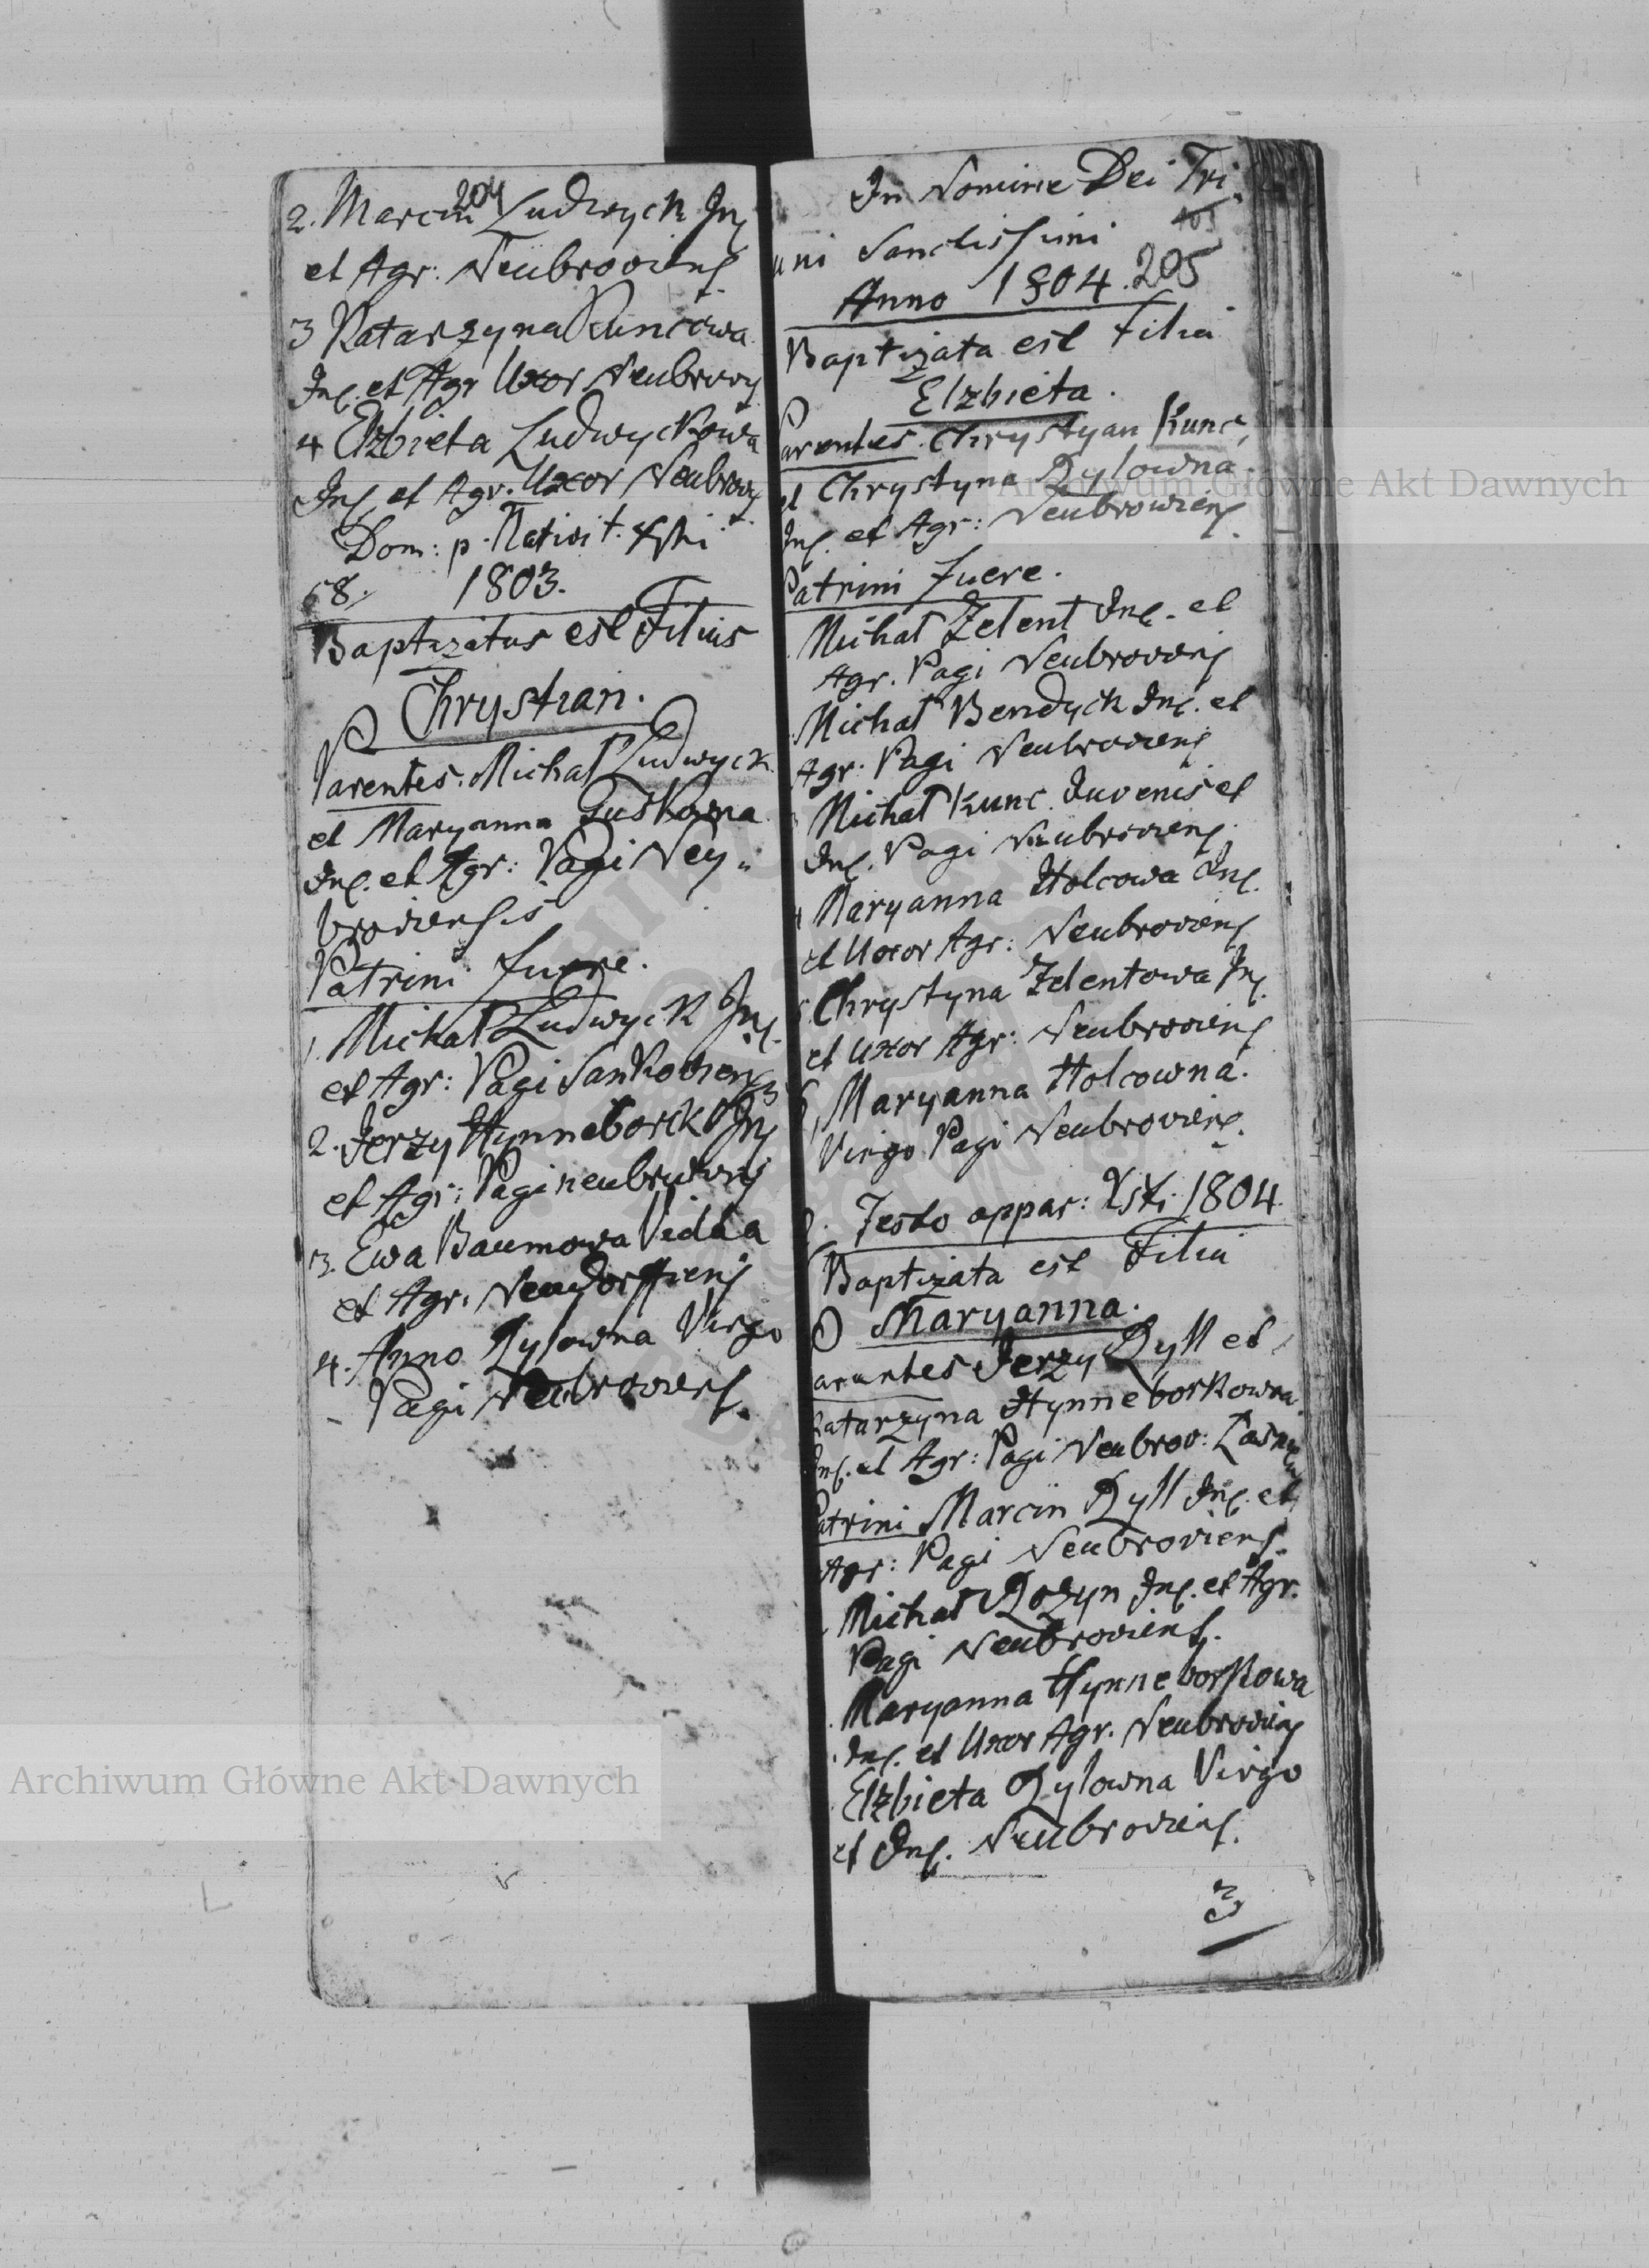 204
2. Marcin Ludwyck Inq
et Agr: Neubroviens.
3 Katarzyna Kuncowa
Inq. et Agr Uxor Neubrovs
4 Elzbieta Ludwyckowa
Inq. et Agr. Uxor Neubrovs
Dom: p. Nativit. Xsti
1803.
Baptizatus est Filius
Chrystian.
Parentes. Michał Ludwyck
et Maryanna Guskowna
Inq. et Agr: Pagi Ney„
broviensis
Patrini fuere.
1. Michał Ludwyck Inq.
et Agr: Pagi
2. Jerzy Hynneborck Inq
et Agr: Pagi neubrovns
3. Ewa Baumowa Vidua
et Agr. Neudorffiens
4. Anna Rylowna Virgo
Pagi Neubroviens.
In Nomine Dei Tri„
uni Sanctissimi
Anno 1804. 205
Baptizata est Filia
Elzbieta.
Parentes. Chrystyan Kunc,
et Chrystyna Rylowna.
Inq. et Agr: Neubroviens.
Patrini fuere.
Michał Zelent Inq. et
Agr. Pagi Neubroviens
Michał Bendyck Inq. et
Agr. Pagi Neubroviens
Michał Kunc. Juvenis et
Inq. Pagi Neubroviens.
4 Maryanna Holcowa Inq.
et Uxor Agr: Neubroviens
5 Chrystyna Zelentowa Inq.
et Uxor Agr: Neubroviens
6 Maryanna Holcowna.
Virgo Pagi Neubroviens.
Festo appar: Xsti 1804.
Baptizata est Filia
Maryanna.
Parentes Jerzy Ryll et
Katarzyna Hynneborkowna
Inq. et Agr: Pagi Neubrov:
Patrini Marcin Ryll Inq. et
Agr: Pagi Neubroviens.
Michał Rozyn Inq. et Agr.
Pagi Neubroviens.
Maryanna Hynneborkowa
Inq. et Uxor Agr. Neubroviens
Elzbieta Rylowna Virgo
et Inq. Neubroviens.
3
Archiwum Główne Akt Dawnych
Archiwum Główne Akt Dawnych